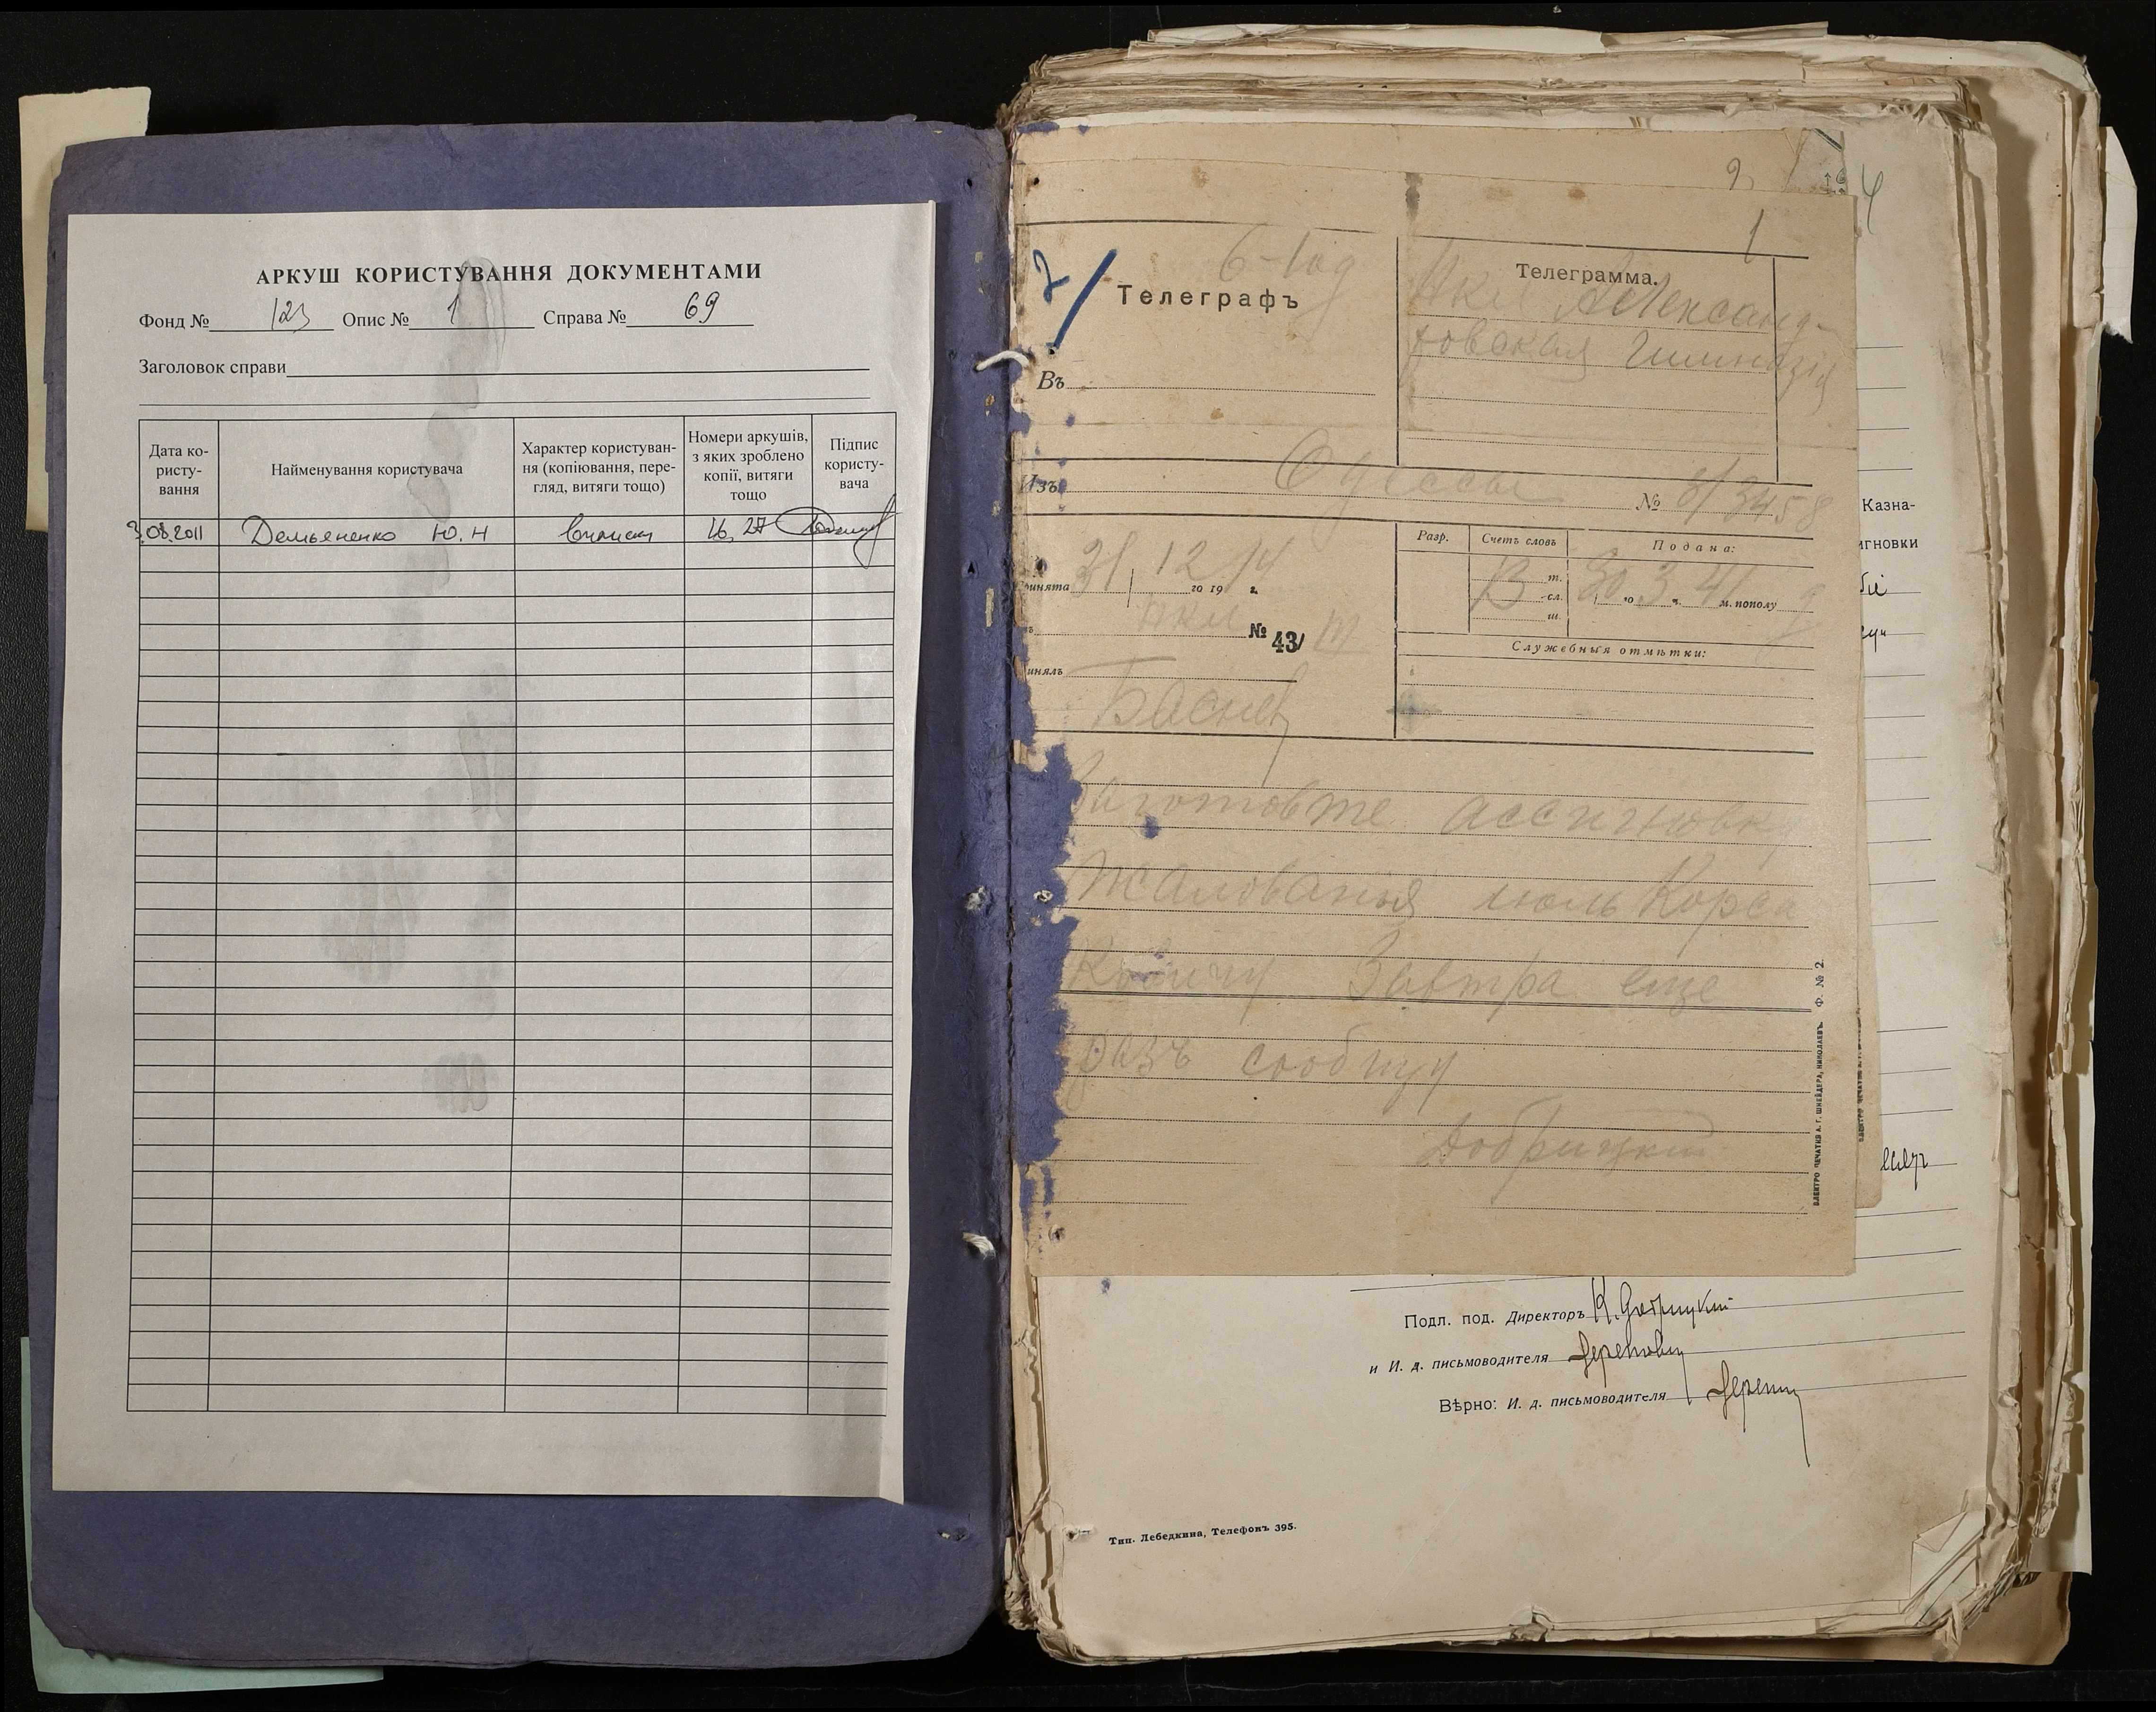 АРКУШ КОРИСТУВАННЯ ДОКУМЕНТАМИ
Фонд № 123 Опис № 1 Справа № 69
Заголовок справи
Дата ко-
ристу-
вання
Найменування користувача
Характер користуван-
ня (копіювання, пере-
гляд, витяги тощо)
Номери аркушів,
з яких зроблено
копії, витяги
тощо
Підпис
користу-
вача
3.08.2011 Демьяненко Ю.Н 26, 27
9
4
1
Телеграфъ
Въ
Телеграмма.
Нкл Александ-
ровская Гимназія
Изъ Одессы № 8/3458
Разр.
Счетъ словъ
Подана:
т.
сл.
ш.
го ч. м. пополу
31 12 14
го 19 г.
Нкл
№ 43/
Служебныя отмѣтки:
Заготовте ассигновку
Жалованья июль Корса
Ковичу Завтра еще
разъ сообщу
Добрицкий
ЭЛЕКТРО ПЕЧАТНЯ А. Г. ШНЕЙДЕРА, НИКОЛАЕВЪ. Ф. № 2.
Казна-
игновки
Подл. под. Директоръ К. Добрицкий
и И. д. письмоводителя
Вѣрно: И. д. письмоводителя
Тип. Лебедкина, Телефонъ 395.